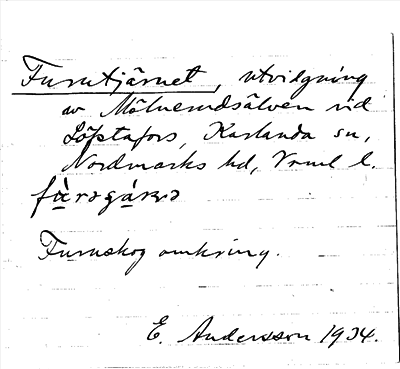 Furutjärnet, utvidgning
av Mölnerudsälven vid
Löftafors, Karlanda sn,
Nordmarks hd, Vrml l.
Furuskog omkring.
E. Andersson 1934.